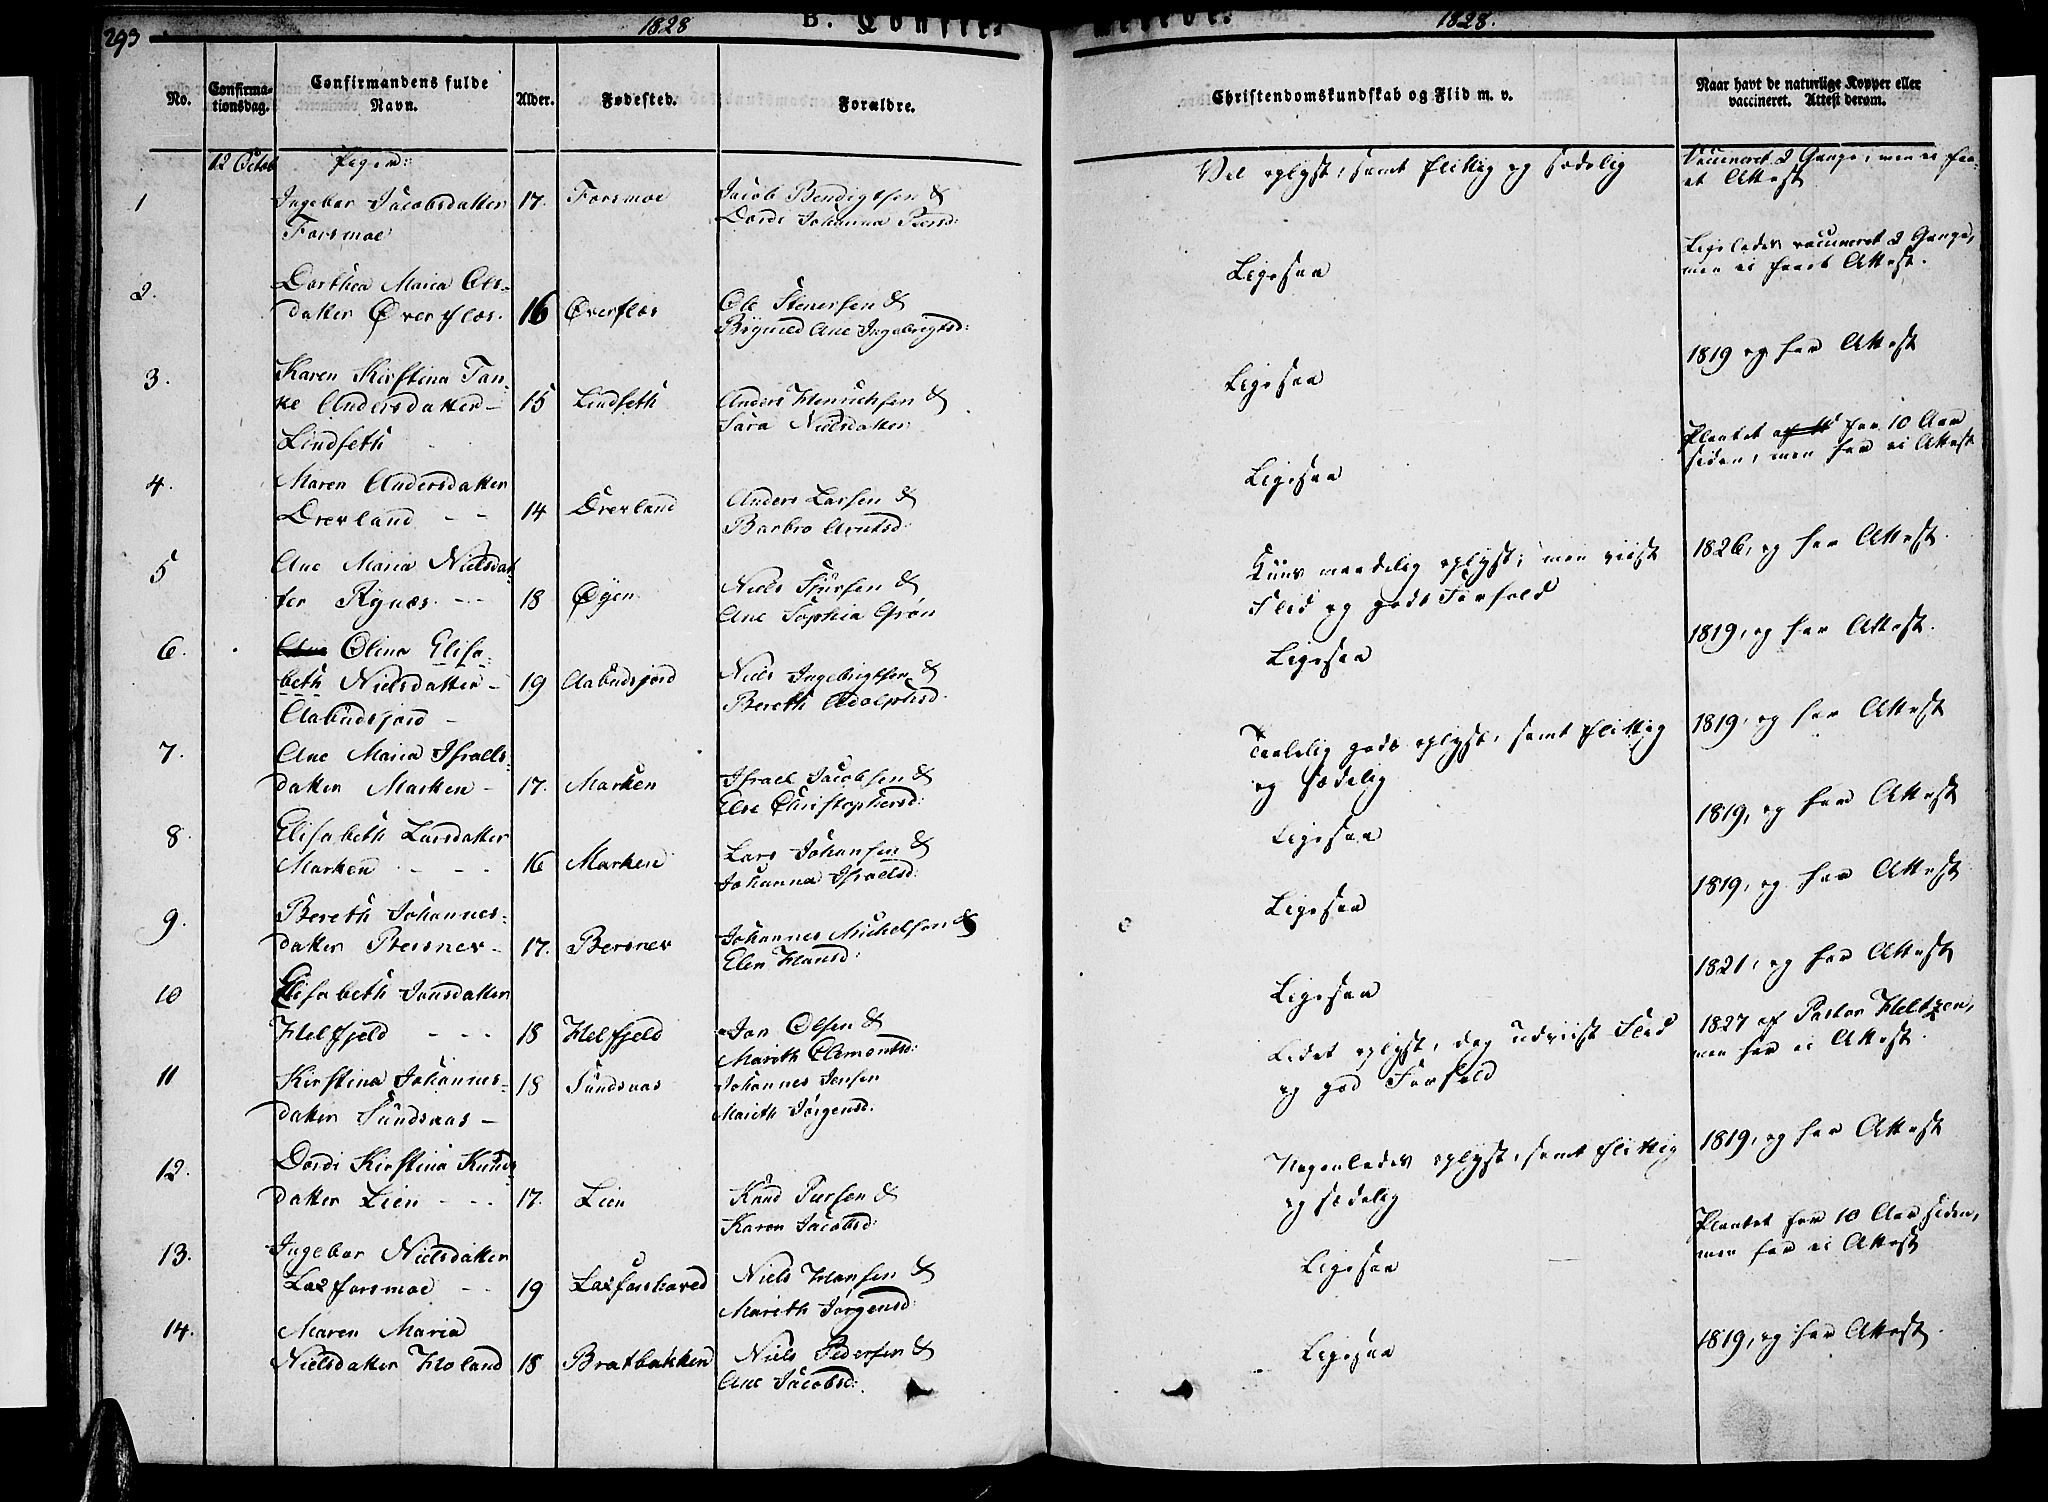 293
1828
B. Confir-
merede.
1828.
No.
Confirma-
tionsdag.
Confirmandens fulde
Navn.
Alder.
Fødested.
Forældre.
Christendomskundskab og Flid m. v.
Naar havt de naturlige Kopper eller
vaccineret. Attest derom.
12 Octob
Piger:
1
Ingebor Jacobsdatter
Forsmoe
17.
Forsmoe
Jacob Bendigtsen &
Dordi Johanna Persd:
Vel oplyst, samt flittig og sædelig
Vaccineret 2 Gange, men ei faa-
et Attest
2.
Dorthea Maria Ols-
datter Øverfløs.
16
Øverfløs
Ole Stenersen &
Ane Ingebrigtsd:
Ligesaa
Ligeledes vaccineret 2 Gange,
men ei faaet Attest.
3.
Karen Kirstina Tan-
ke Andersdatter -
Lindseth
15
Lindseth
Anders Henrichsen &
Sara Nielsdatter
Ligesaa
1819 og har Attest
4.
Maren Andersdatter
Drevland - -
14
Drevland
Anders Larsen &
Barbro Arntsd:
Ligesaa
Plantet for 10 Aar
siden, men har ei Attest
5
Ane Maria Nielsdat-
ter Rynes - -
18
Øyen
Niels Sjursen &
Ane Sophia Grøn
Kuns maadelig oplyst; men viist
Flid og godt Forhold
1826, og har Attest.
6.
Olina Elisa-
beth Nielsdatter -
Aabudsjord -
19
Aabudsjord
Niels Ingebrigtsen &
Bereth Adolphsd.
Ligesaa
1819, og har Attest.
7.
Ane Maria Israels-
datter Marken -
17.
Marken
Israel Jacobsen &
Else Christophersd:
Taalelig godt oplyst, samt flittig
og sædelig
1819, og har Attest
8.
Elisabeth Larsdatter
Marken - - -
16
Marken
Lars Johansen &
Johanna Israelsd:
Ligesaa
1819, og har Attest
9.
Bereth Johannes-
datter Bersnev -
17.
Bersnev
Johannes Michelsen &
Elen Hansd:
Ligesaa
1819, og har Attest
10
Elisabeth Jonsdatter
Helfjeld - - -
18
Helfjeld
Jon Olsen &
Mareth Clemontsd:
Ligesaa
1821, og har Attest
11
Kirstina Johannes-
datter Sundsnas -
18
Sundsnas
Johannes Jensen
Mareth Jørgensd.
Lidet oplyst, dog udviist Flid
og god Forhold
1827 af Pastor Heltzen,
men har ei Attest.
12.
Dordi Kirstina Knuds
datter Lien - - -
17.
Lien
Knud Persen &
Karen Jacobsd:
Nogenledes oplyst, samt flittig
og sædelig
1819, og har Attest
13.
Ingebor Nielsdatter
Laxforsmoe - -
19
Laxforshoved
Niels Hansen &
Mareth Jorgensd:
Ligesaa
Plantet for 10 Aar siden,
men har ei Attest
14.
Maren Maria
Nielsdatter Holand
18
Bratbakken
Niels Pedersen &
Ane Jacobsd:
Ligesaa
1819, og har Attest.